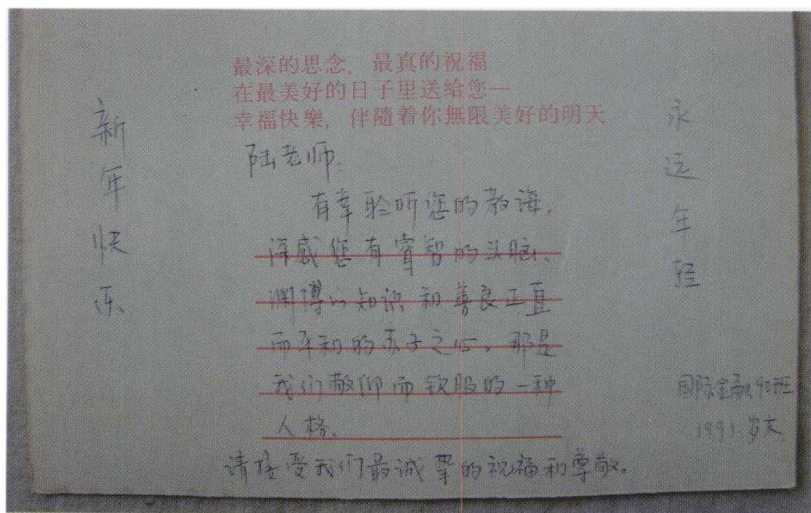 最深的思念，最真的祝福
在最美好的日子里送给您一
幸福快樂，伴隨着你無限美好的明天
新年快乐
陆老师：
有幸聆听您的教诲，
深感您有睿智的头脑、
渊博的知识和善良正直
而平和的赤子之心。那是
我们敬仰而钦服的一种
人格。
请接受我们最诚挚的祝福和尊敬。
永远年轻
国际金融90班
1991.岁末